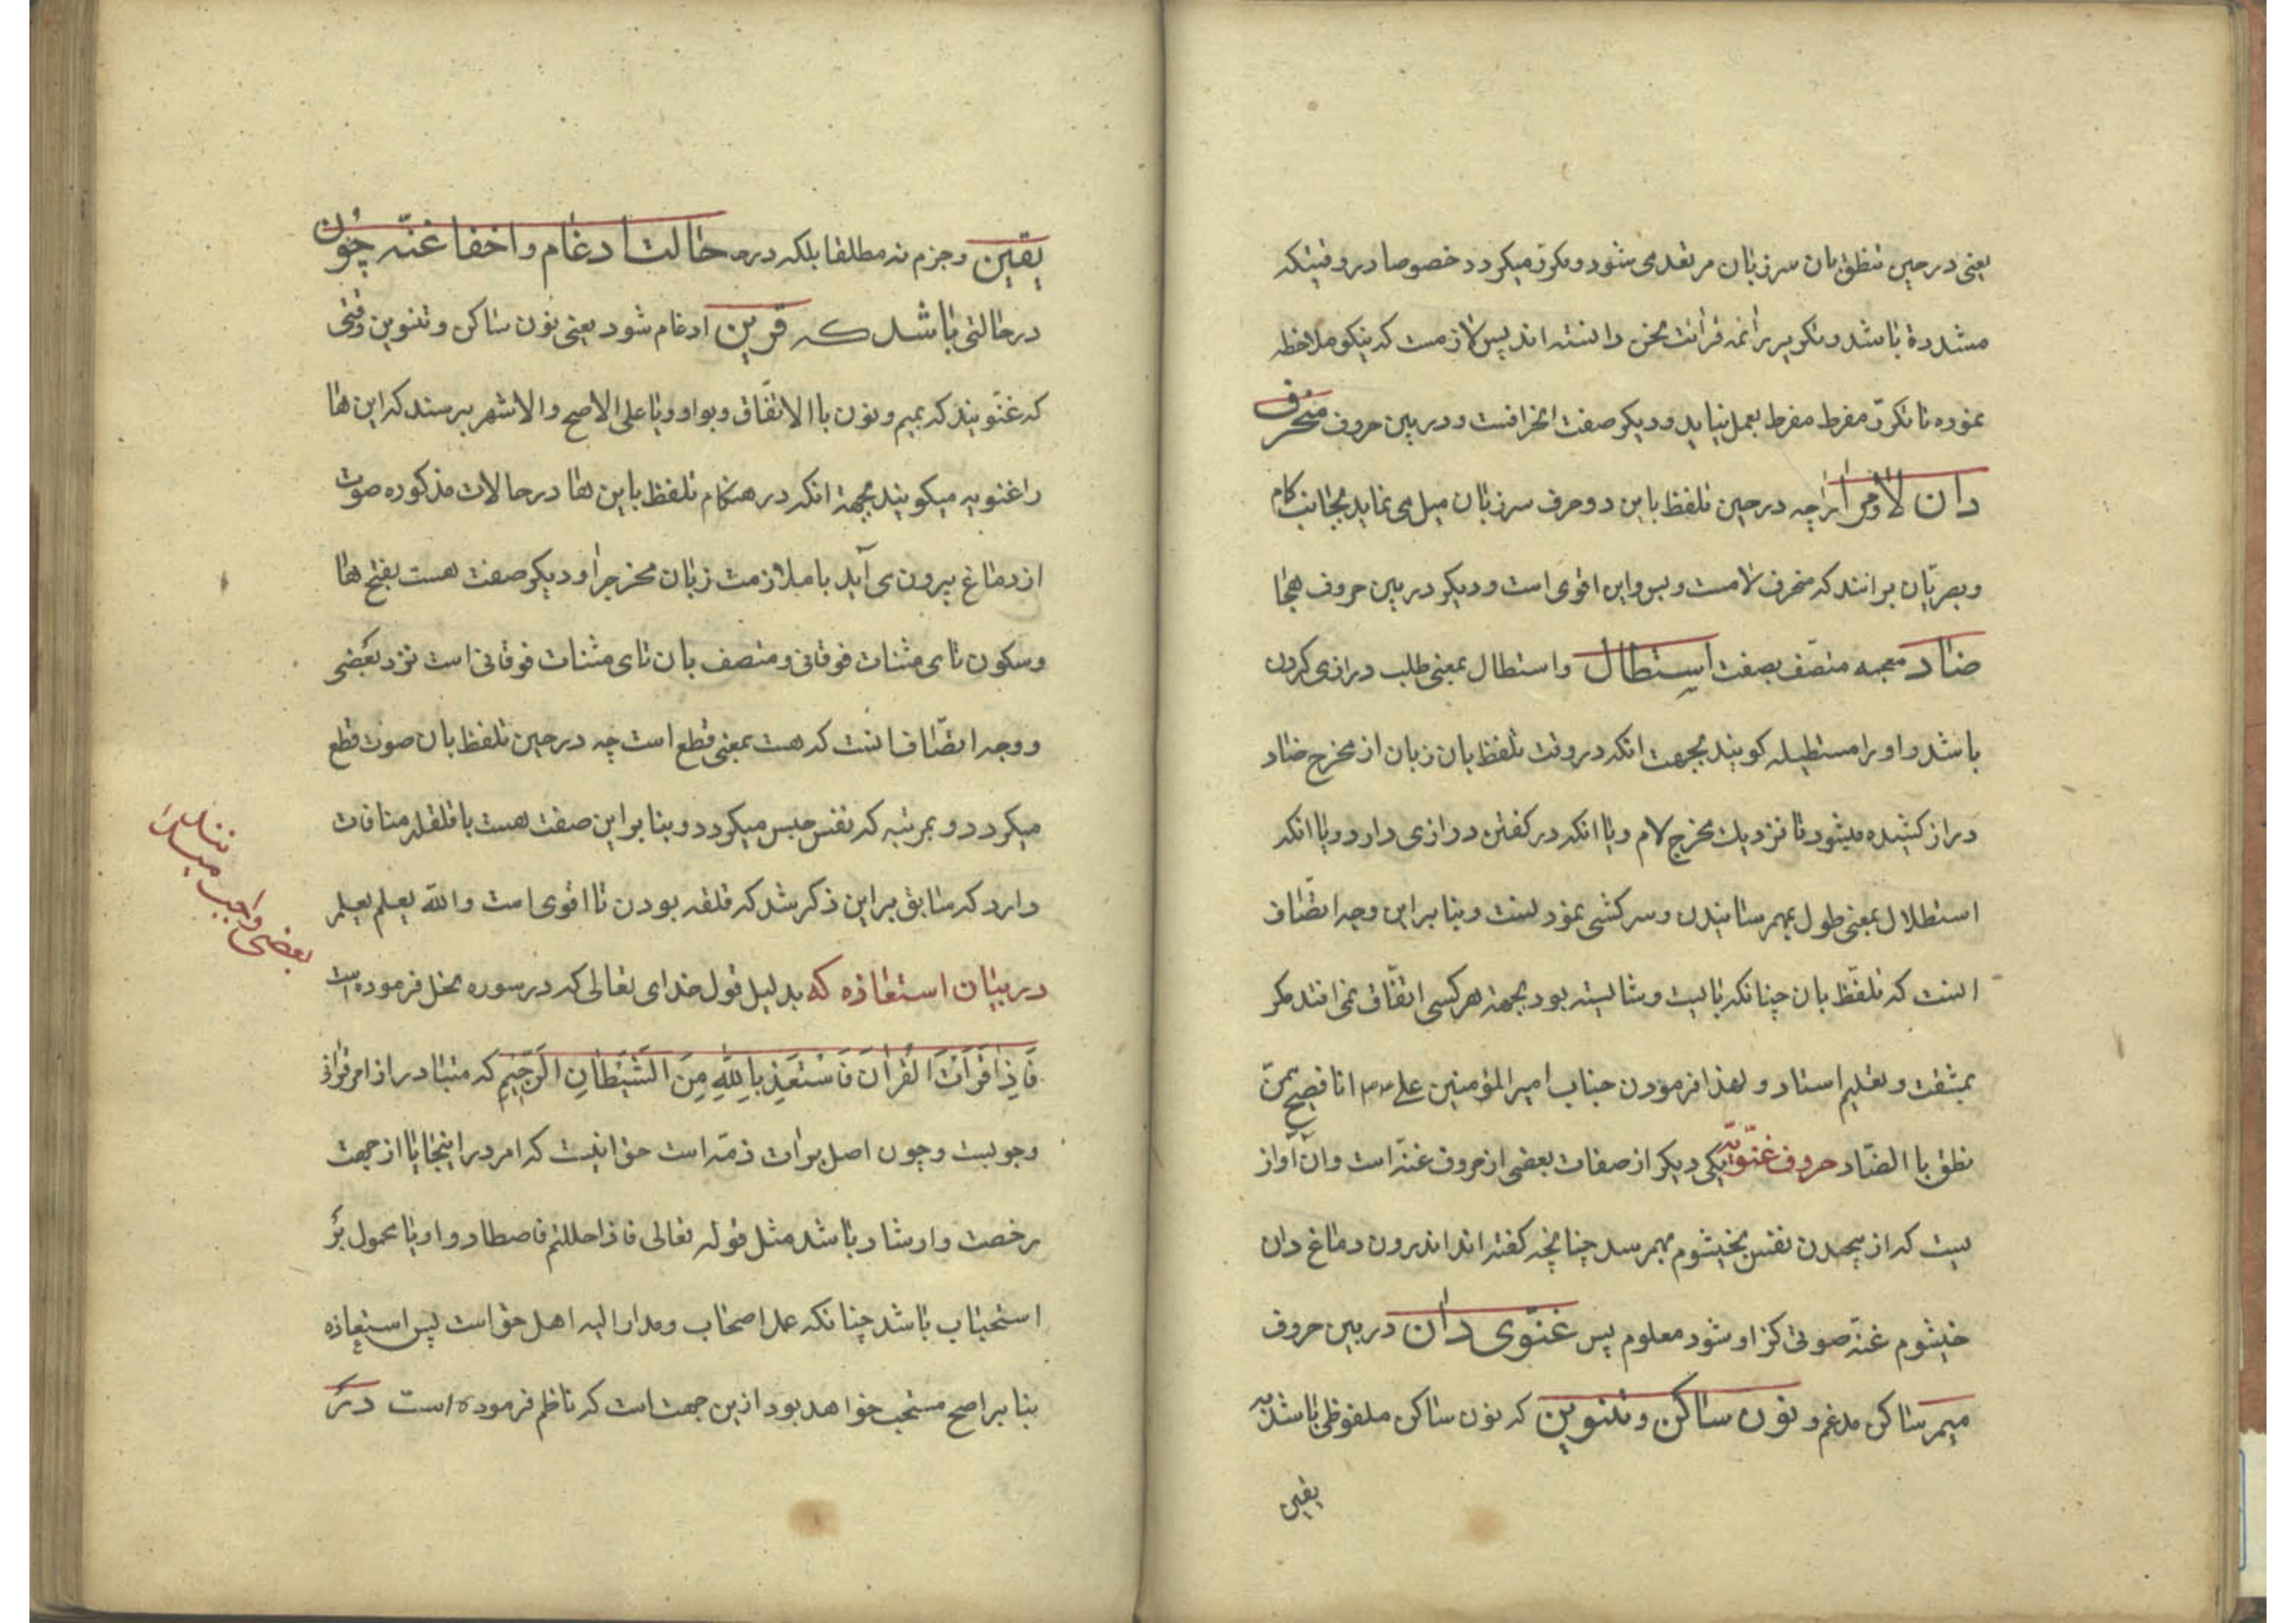 یعنی در حین تنطق بان سر زبان مرتعد می شود و مکرّر میکردد خصوصا در وقتیکه
مشدده باشد و تکریر را ائمه قرائت لحن دانسته اند پس لازمست که نیکو ملاحظه
نموده تا تکرّر مفرط مفرط بعمل نیاید و دیکر صفت انحرافست و در بین حروف منحرف
دان لام و را چه در حین تلفظ باین دو حرف سر زبان میل می نماید بجانب کام
و بصریّان برانند که منحرف لامست و بس و این اقوی است و دیکر در بین حروف هجا
ضاد معجمه متصّف بصفت استطال و استطال بمعنی طلب درازی کردن
باشد و او را مستطیله کویند بجهت انکه در وقت تلفظ بان زبان از مخرج ضاد
دراز کشیده میشود تا نزدیك مخرج لام و یا انکه در کفتن درازی دارد و یا انکه
استطلال بمعنی طول بهمرسانیدن و سرکشی نمودنست و بنا براین وجه اتصّاف
انست که تلفّظ بان چنانکه بایست و شایسته بود بجهة هر کسی اتفّاق نمی افتد مکر
بمشقت و تعلیم استاد و لهذا فرمودن جناب امیر المؤمنین علی انا فصیح بمن
نطق با الضّاد حروف غنّویّه یکی دیکر از صفات بعضی از حروف غنّه است و ان اواز
یست که از پیچیدن نفس بخیشوم بهمرسد چنانچه کفته اند اندرون دماغ دان
خیشوم غنّه صوتی کز او شود معلوم پس غنّوی دان در بین حروف
میم ساکن مدغم و نون ساکن و تنوین که نون ساکن ملفوظی باشد به
یقین
یقین و جزم نه مطلقا بلکه در حالت ادغام و اخفا غنّه چون
در حالتی باشد که قرین ادغام شود یعنی نون ساکن و تنوین وقتی
که غنّویند که بمیم و نون با الاتفّاق و بواو و یا علی الاصح و الاشهر برسند که این ها
را غنویه میکویند بجهة انکه در هنکام تلفظ باین ها در حالات مذکوره صوت
از دماغ بیرون می آید با ملازمت زبان مخرج را و دیکر صفت هست بفتح ها
و سکون تای مثنات فوقانی و متصف بان تای مثنات فوقانی است نزد بعضی
و وجه اتصّاف انست که هست بمعنی قطع است چه در حین تلفظ بان صوت قطع
میکردد و بمرتبه که نفس حبس میکردد و بنا براین صفت هست با قلقله منافات
دارد که سابق براین ذکر شد که قلقه بودن تا اقوی است و الله یعلم یعلم
در بیان استعاذه که بدلیل قول خدای تعالی که در سوره نحل فرموده است
فَاِذٰا قَرَاْتَ الْقُرْانَ فَاسْتَعِذْ بِاللّٰهِ مِنَ الشَّیْطَانِ الرَّجِیْمِ که متبادر از امر قرانی
وجوبست و چون اصل برات ذمّه است حق انیست که امر در اینجا یا از جهت
رخصت و ارشاد باشد مثل قوله تعالی فاذا حللتم فاصطادوا و یا محمول بر
استحباب باشد چنانکه عمل اصحاب و مدار الیه اهل حق است پس استعاذه
بنا بر اصح مستحب خواهد بود ازین جهت است که ناظم فرموده است در
بعضی واجب میدانند